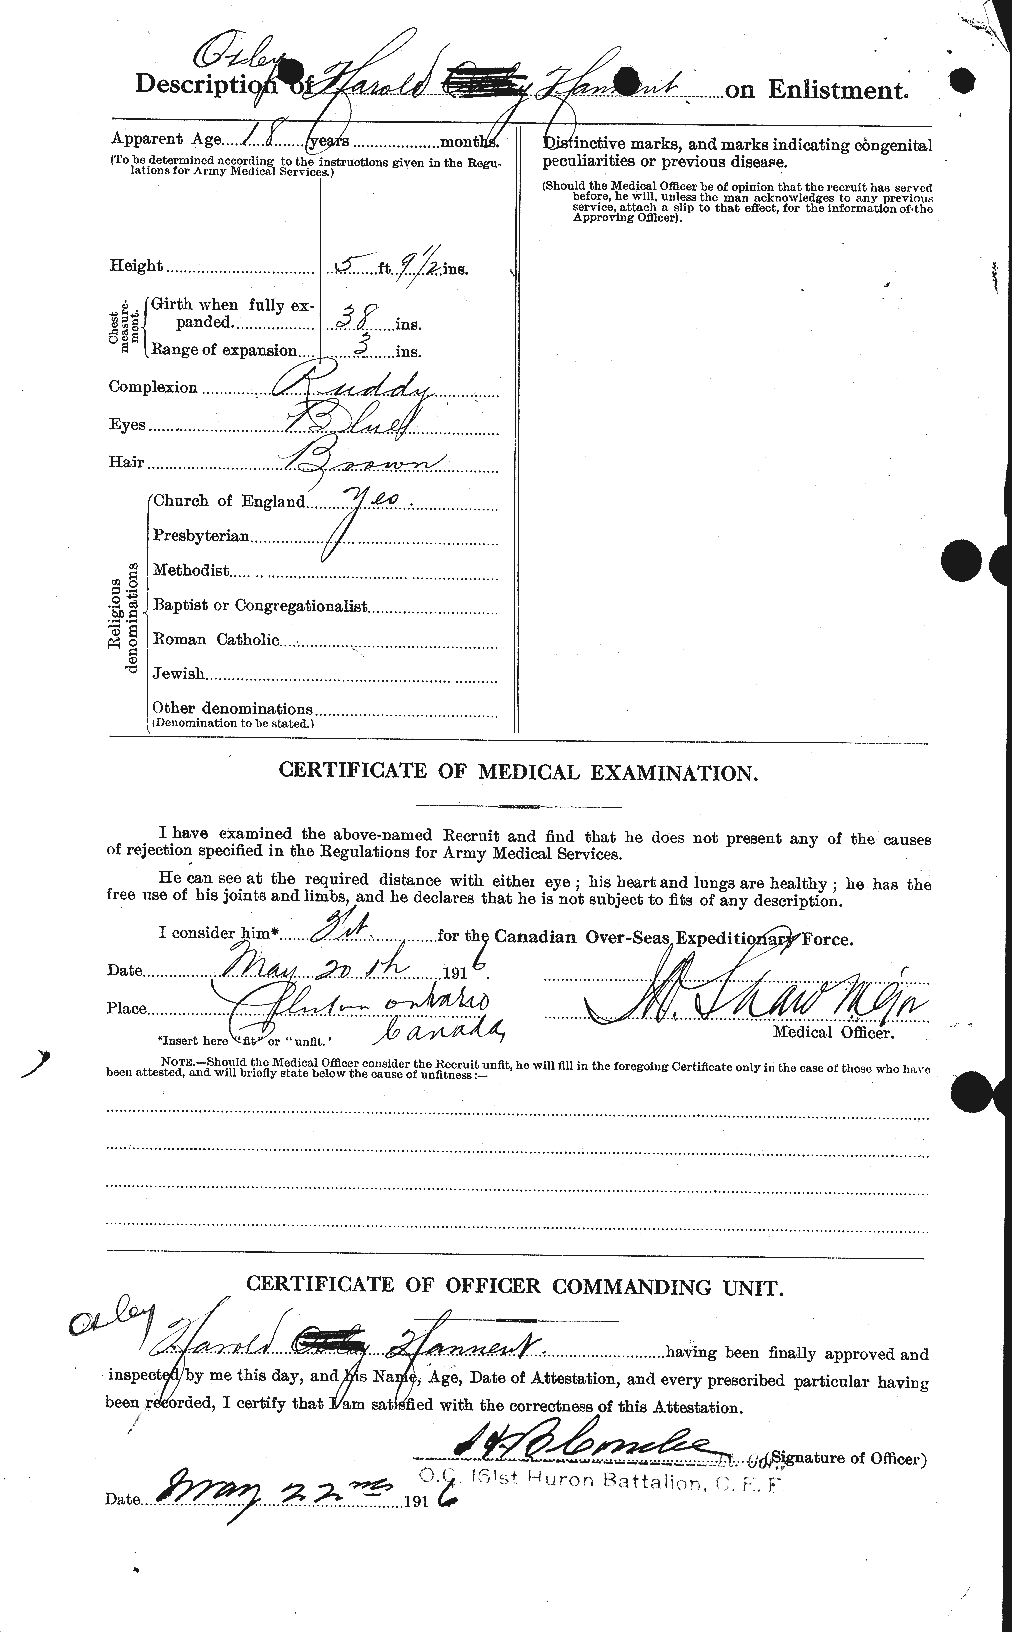 Oxley
Description of Harold Hannent on Enlistment.
Apparent Age 18 years months.
(To be determined according to the instructions given in the Regu-
lations for Army Medical Services.)
Height 5 ft. 9 1/2 ins.
Chest
measure-
ment.
Girth when fully ex-
panded 38 ins.
Range of expansion 3 ins.
Complexion Ruddy
Eyes Blue
Hair Brown
Religious
denominations
Church of England Yes.
Presbyterian
Methodist
Baptist or Congregationalist
Roman Catholic
Jewish
Other denominations
(Denomination to be stated.)
Distinctive marks, and marks indicating congenital
peculiarities or previous disease.
(Should the Medical Officer be of opinion that the recruit has served
before, he will, unless the man acknowledges to any previous
service, attach a slip to that effect, for the information of the
Approving Officer).
CERTIFICATE OF MEDICAL EXAMINATION.
I have examined the above-named Recruit and find that he does not present any of the causes
of rejection specified in the Regulations for Army Medical Services.
He can see at the required distance with either eye; his heart and lungs are healthy; he has the
free use of his joints and limbs, and he declares that he is not subject to fits of any description.
I consider him* Fit. for the Canadian Over-Seas Expeditionary Force.
Date May 20th 1916.
Place Clinton Ontario
Canada
Shaw Major
Medical Officer.
*Insert here "fit" or "unfit."
NOTE.—Should the Medical Officer consider the Recruit unfit, he will fill in the foregoing Certificate only in the case of those who have
been attested, and will briefly state below the cause of unfitness:—
CERTIFICATE OF OFFICER COMMANDING UNIT.
Oxley
Harold Hannent. having been finally approved and
inspected by me this day, and his Name, Age, Date of Attestation, and every prescribed particular having
been recorded, I certify that I am satisfied with the correctness of this Attestation.
H B Combe Lt. Col. (Signature of Officer)
O.C. 161st Huron Battalion, C. E. F
Date May 22nd 1916